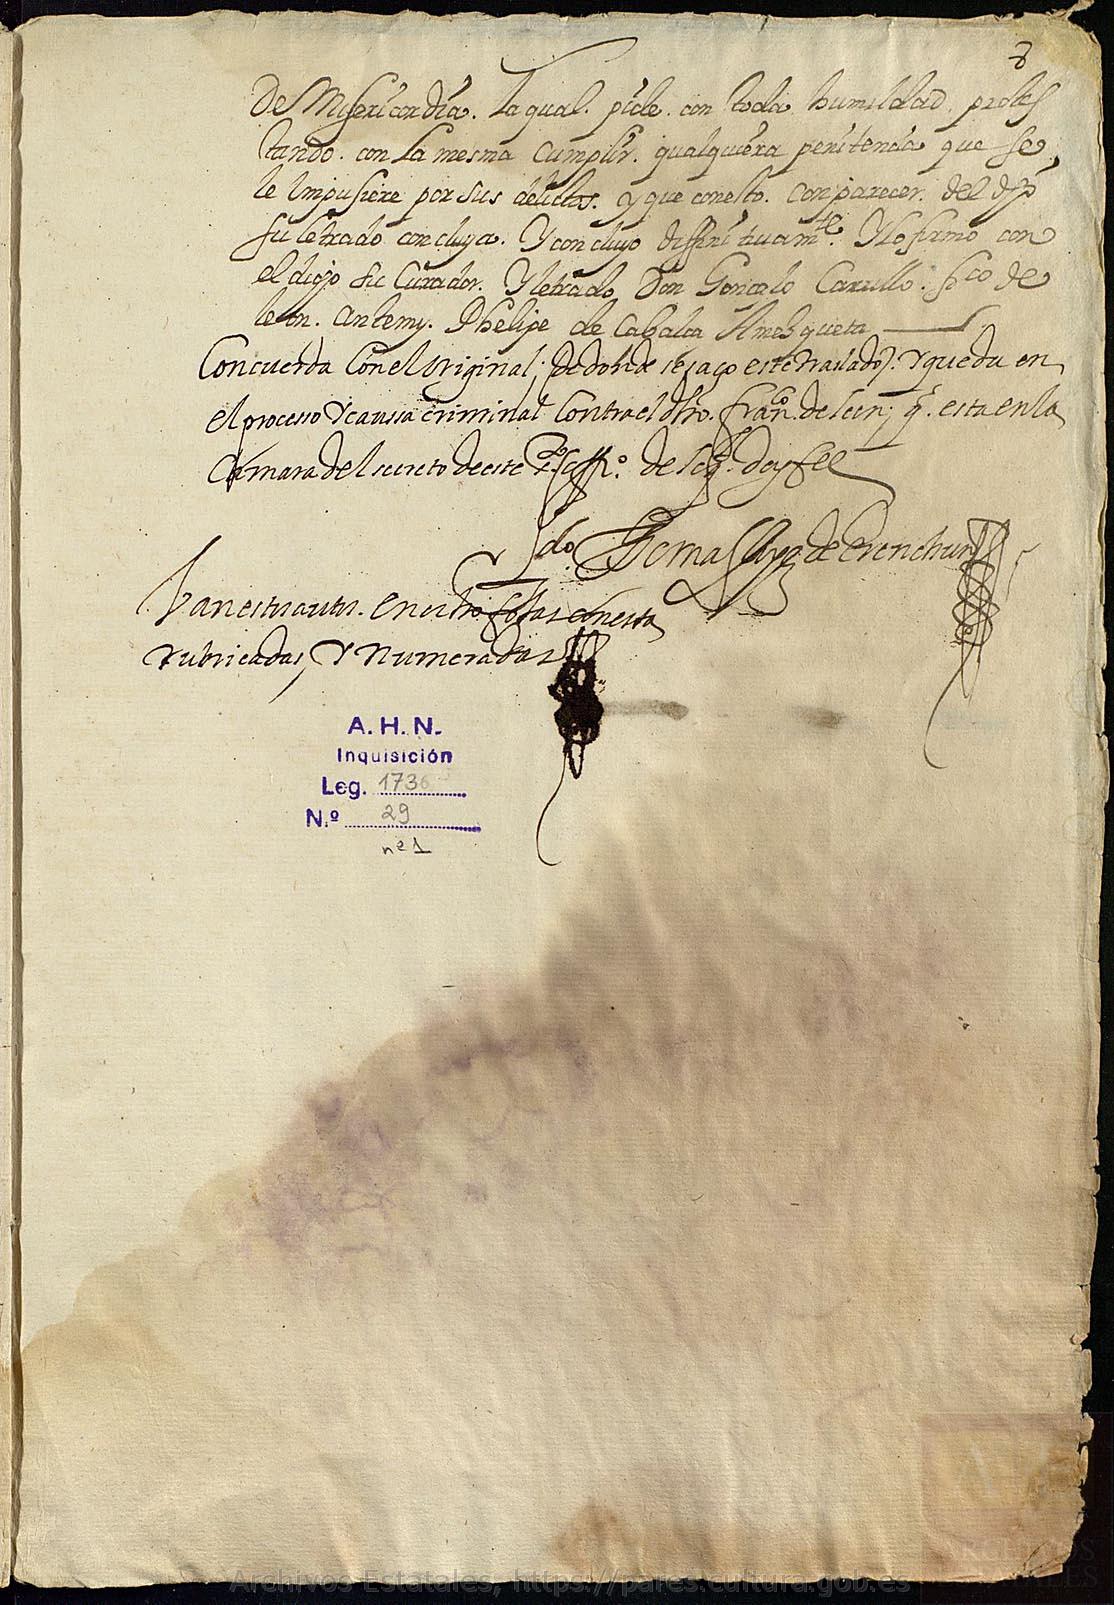 8
De Misericordia. La qual. pide. con toda humildad. protes
tando. con La mesma Cumplir. qualquiera penitencia que se
le Impusiere por sus delictos. y que con esto. con parecer. del dho
su letrado concluya. Y concluyo diffinitivamte. Y lo firmo con
el dicho su Curador. Y letrado Don Gonçalo Carrillo. fco de
leon. Ante my. Phelipe de Çabalça Amesqueta
Concuerda Con el original; de donde se saço este traslado. Y queda en
el proceso Y caussa criminal Contra el dho. franco. de leon; q. esta en la
Camara del secreto de este sto. offo. de Log. doy fee
ldo. Thomas de Erenchun
Van estos autos. en ocho fojas con esta
rubricadas, Y Numeradas
A. H. N.
Inquisición
Leg. 1736
N.º 29
nº 1
Archivos Estatales, https://pares.cultura.gob.es